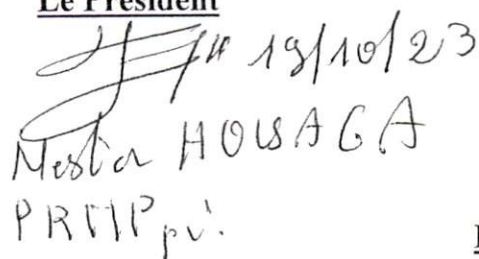 Le Président
19/10/23
HOUSAGA
PRMP pi.